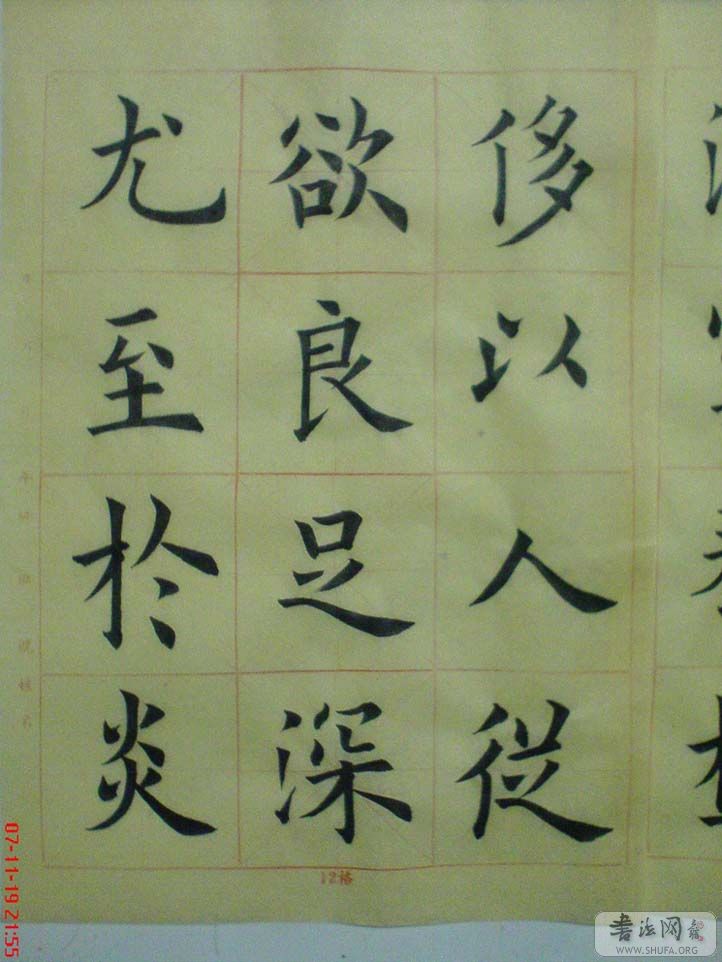 侈以人從
欲良足深
尤至於炎
12格
07-11-19 21:55
書法网
WWW.SHUFA.ORG